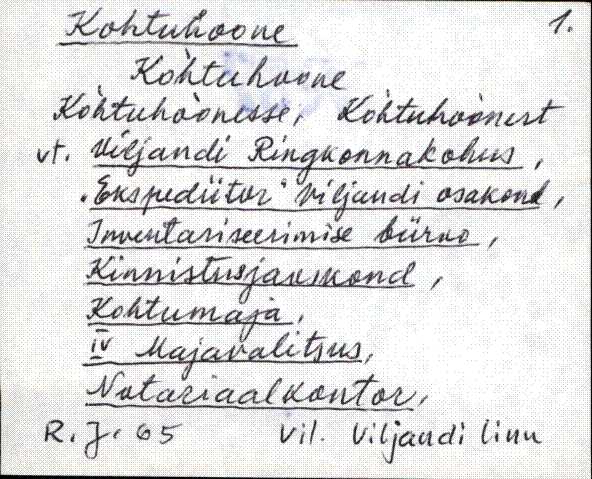 Kohtuhoone 1.
Kòhtuhoone
Kòhtuhoònesse, Kòhtuhoònest
vt. Viljandi Ringkonnakohus,
"Ekspediitor" Viljandi osakond,
Inventariseerimise büroo,
Kinnistusjaoskond,
Kohtumaja,
IV Majavalitsus,
Notariaalkontor,
R. J. 65 Vil. Viljandi linn